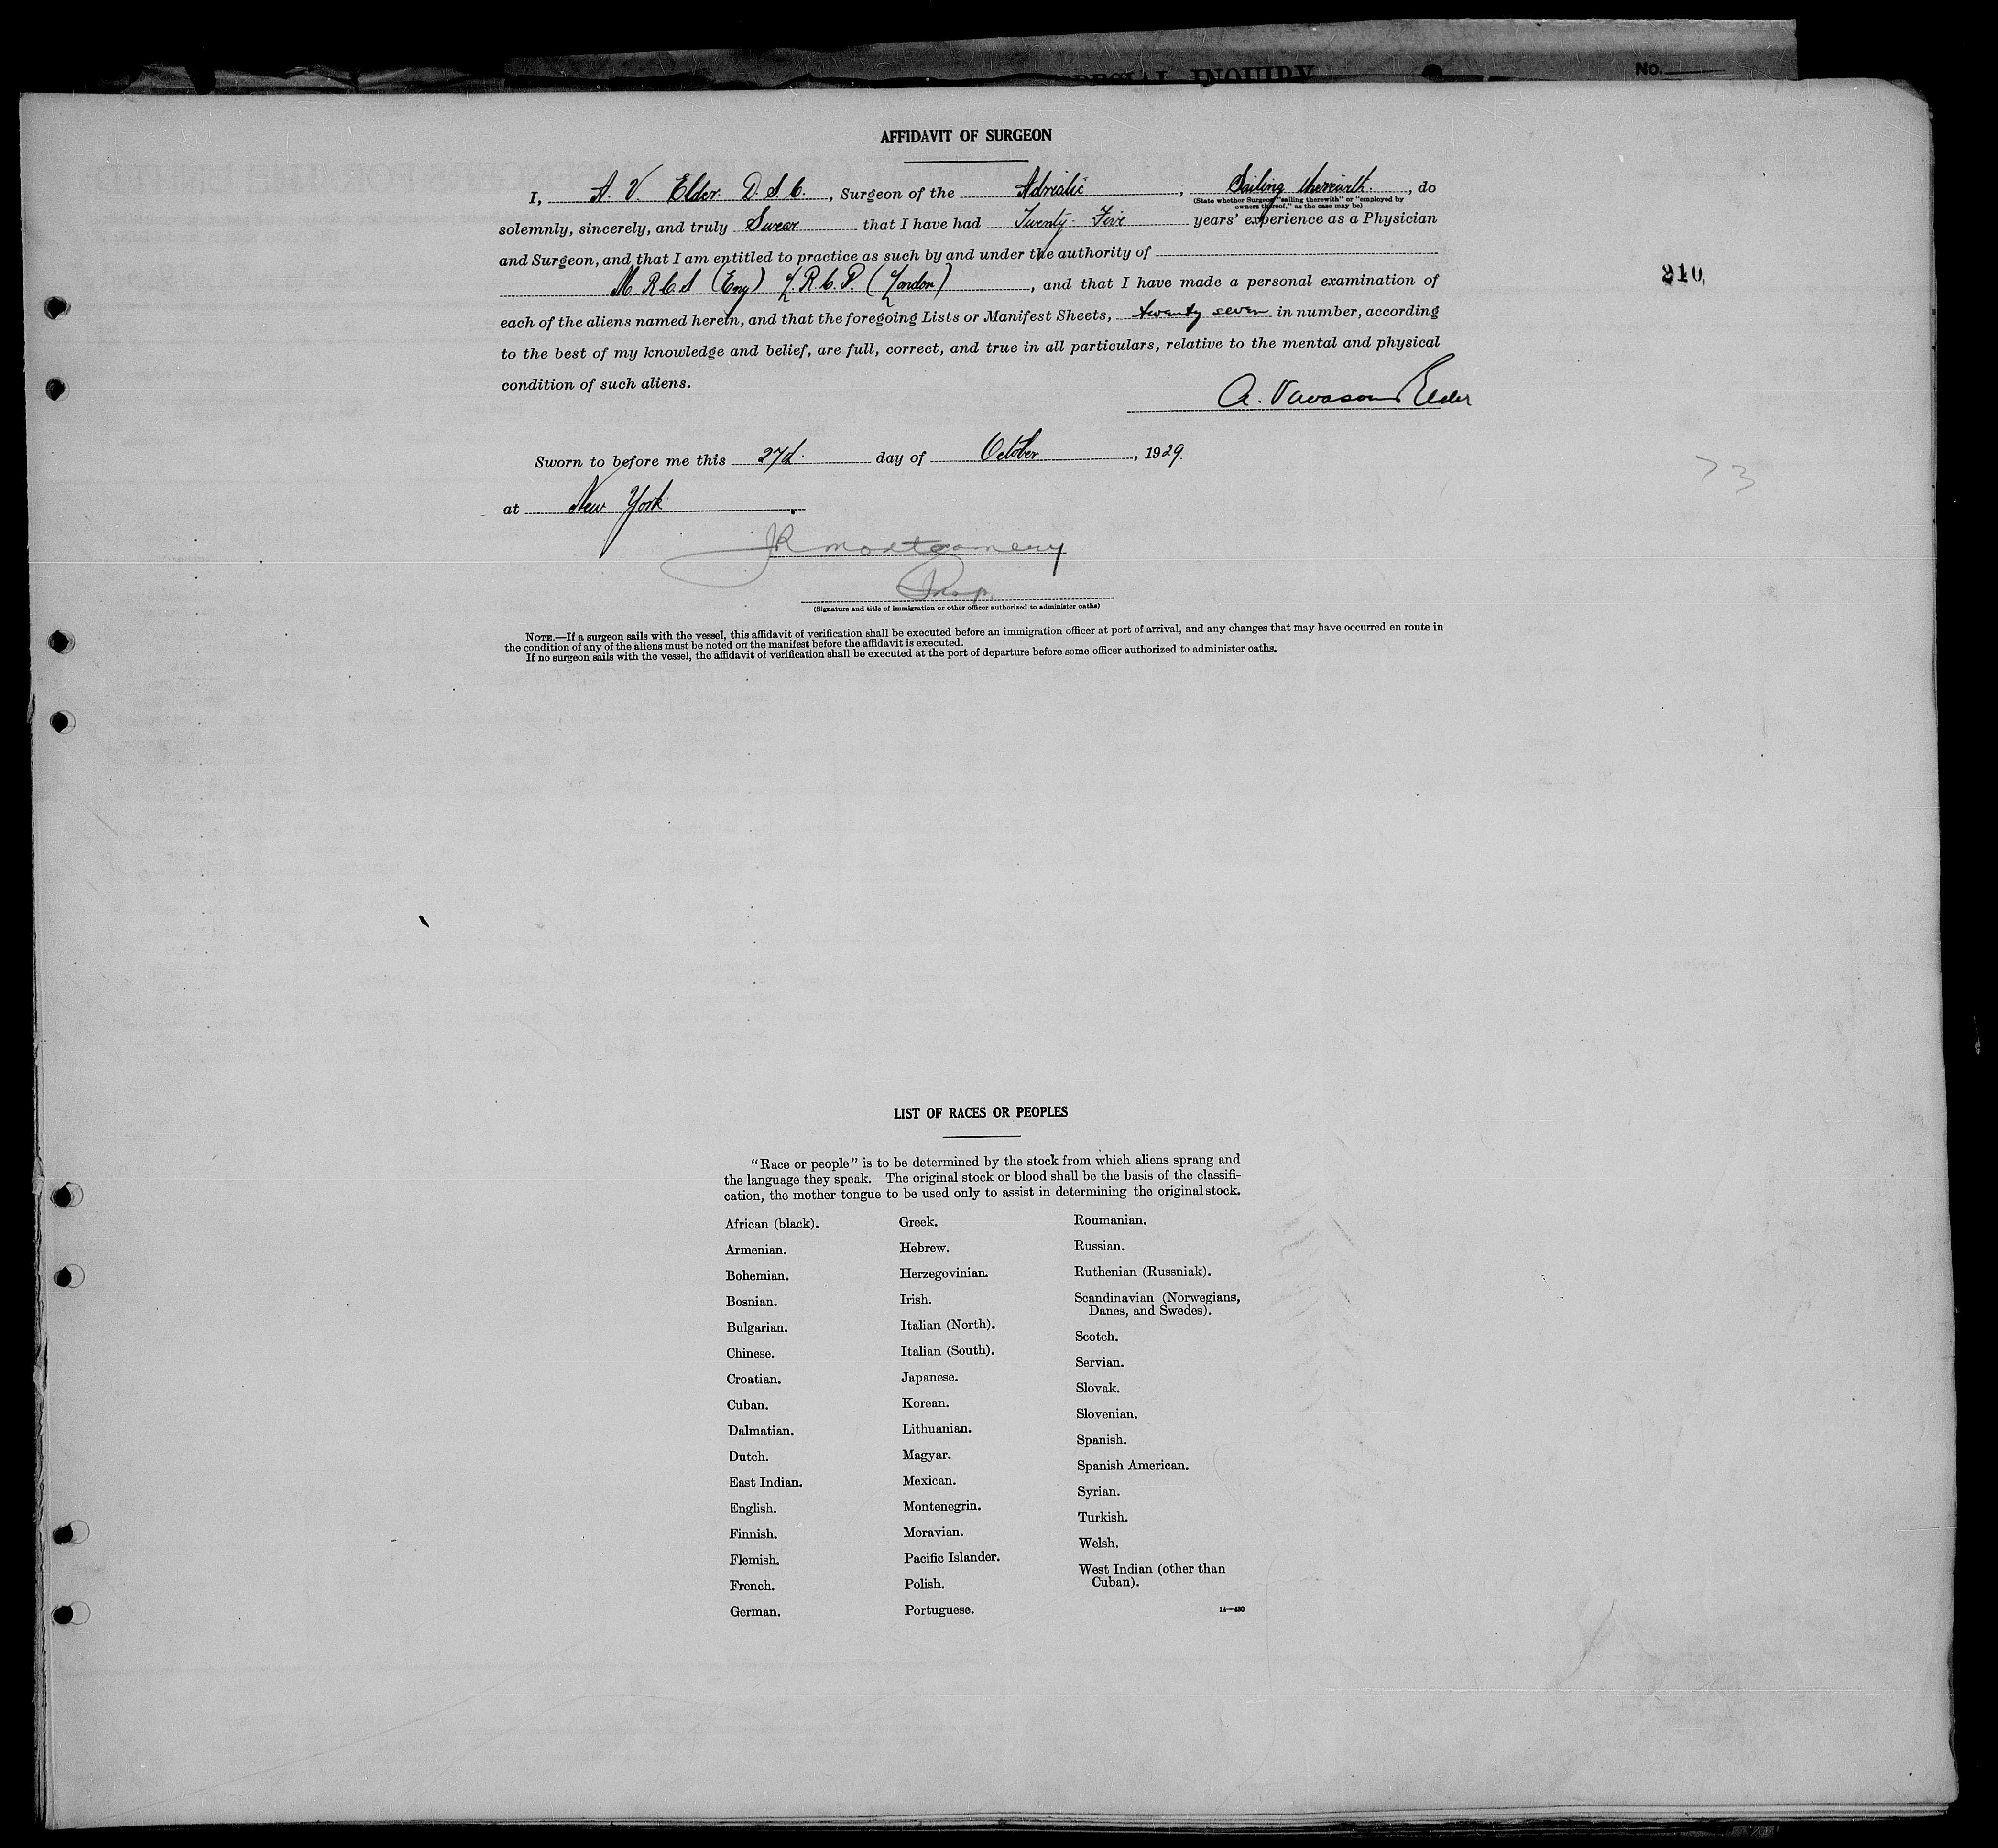 SPECIAL INQUIRY
No.
AFFIDAVIT OF SURGEON
I, A. V. Elder. D.S.O., Surgeon of the Adriatic, Sailing therewith., do
(State whether Surgeon "sailing therewith" or "employed by
owners thereof," as the case may be)
solemnly, sincerely, and truly Swear that I have had Twenty-Five years' experience as a Physician
and Surgeon, and that I am entitled to practice as such by and under the authority of
M.R.C.S (Eng) L.R.C.P. (London), and that I have made a personal examination of
210
each of the aliens named herein, and that the foregoing Lists or Manifest Sheets, twenty seven in number, according
to the best of my knowledge and belief, are full, correct, and true in all particulars, relative to the mental and physical
condition of such aliens.
A. Vavasour Elder
Sworn to before me this 27th. day of October, 1929.
73
at New York
JR Montgomery
Insp.
(Signature and title of immigration or other officer authorized to administer oaths)
NOTE.—If a surgeon sails with the vessel, this affidavit of verification shall be executed before an immigration officer at port of arrival, and any changes that may have occurred en route in
the condition of any of the aliens must be noted on the manifest before the affidavit is executed.
If no surgeon sails with the vessel, the affidavit of verification shall be executed at the port of departure before some officer authorized to administer oaths.
LIST OF RACES OR PEOPLES
"Race or people" is to be determined by the stock from which aliens sprang and
the language they speak. The original stock or blood shall be the basis of the classifi-
cation, the mother tongue to be used only to assist in determining the original stock.
African (black).
Armenian.
Bohemian.
Bosnian.
Bulgarian.
Chinese.
Croatian.
Cuban.
Dalmatian.
Dutch.
East Indian.
English.
Finnish.
Flemish.
French.
German.
Greek.
Hebrew.
Herzegovinian.
Irish.
Italian (North).
Italian (South).
Japanese.
Korean.
Lithuanian.
Magyar.
Mexican.
Montenegrin.
Moravian.
Pacific Islander.
Polish.
Portuguese.
Roumanian.
Russian.
Ruthenian (Russniak).
Scandinavian (Norwegians,
Danes, and Swedes).
Scotch.
Servian.
Slovak.
Slovenian.
Spanish.
Spanish American.
Syrian.
Turkish.
Welsh.
West Indian (other than
Cuban).
14—430